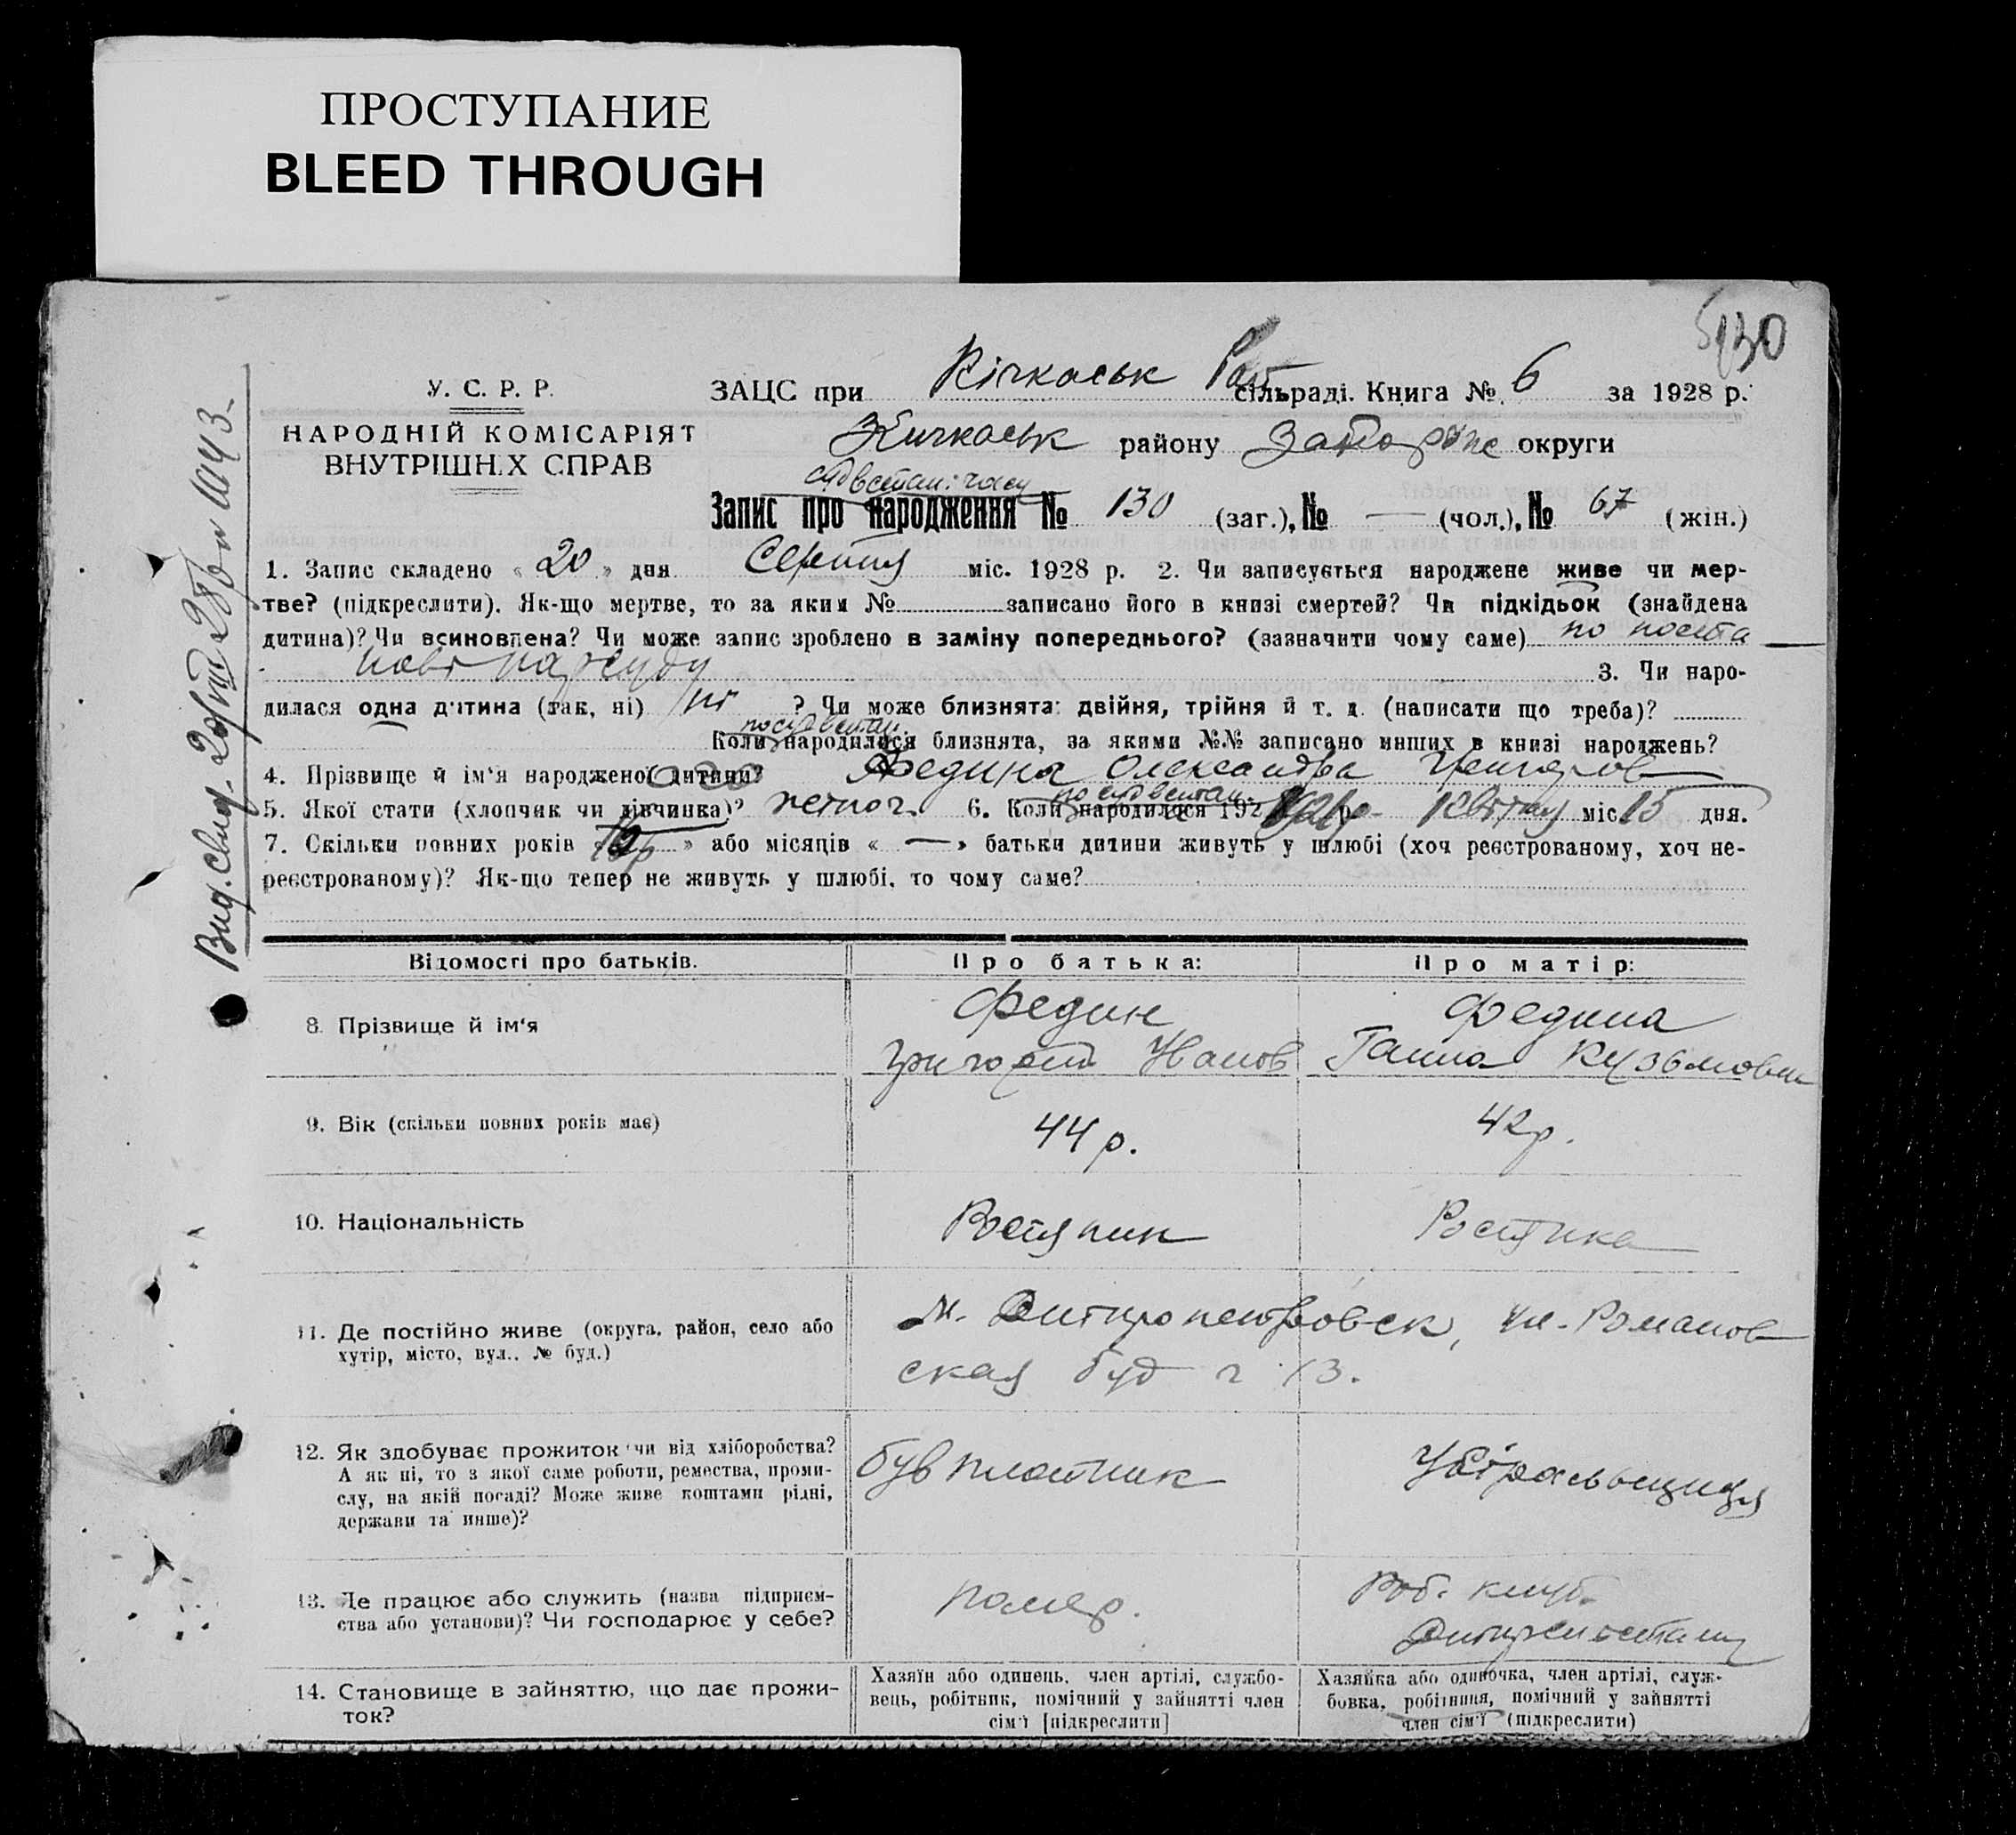 ПРОСТУПАНИЕ
BLEED THROUGH
130
У. С. Р. Р.
НАРОДНІЙ КОМІСАРІЯТ
ВНУТРІШНІХ СПРАВ
ЗАЦС при Кічкаськ сільраді. Книга № 6 за 1928 р.
Кичкаськ району округи
Запис про народження № 130 (заг.), № — (чол.), № 67 (жін.)
1. Запис складено « 20 » дня Серпня міс. 1928 р. 2. Чи записується народжене живе чи мер-
тве? (підкреслити). Як-що мертве, то за яким № записано його в книзі смертей? Чи підкідьок (знайдена
дитина)? Чи всиновлена? Чи може запис зроблено в заміну попереднього? (зазначити чому саме) по поста
нові нарсуду 3. Чи наро-
дилася одна дитина (так, ні) ? Чи може близнята: двійня, трійня й т. д. (написати що треба)?
Коли народилися близнята, за якими №№ записано инших в книзі народжень?
4. Прізвище й ім'я народженої дитини? Федина Олександра
5. Якої стати (хлопчик чи дівчинка)? жіноч. 6. Коли народилася 192 міс. 15 дня.
7. Скільки повних років « » або місяців « — » батьки дитини живуть у шлюбі (хоч реєстрованому, хоч не-
реєстрованому)? Як-що тепер не живуть у шлюбі, то чому саме?
Відомості про батьків. Про батька: Про матір:
8. Прізвище й ім'я Федин Федина
Григорій Иванов Ганна Кузьмовна
9. Вік (скільки повних років має) 44 р. 42 р.
10. Національність Росіянин Росіянка
11. Де постійно живе (округа, район, село або м. Дніпропетровськ, ул. Романов
хутір, місто, вул., № буд.) ская буд ч 13.
12. Як здобуває прожиток чи від хліборобства? був плотник Убіральщиця
А як ні, то з якої саме роботи, ремества, проми-
слу, на якій посаді? Може живе коштами рідні,
держави та инше)?
13. Де працює або служить (назва підприєм- помер. Роб. клуб.
ства або установи)? Чи господарює у себе?
14. Становище в зайняттю, що дає прожи-
ток?
Хазяїн або одинець, член артілі, службо-
вець, робітник, помічний у зайнятті член
сім'ї [підкреслити]
Хазяйка або одиночка, член артілі, служ-
бовка, робітниця, помічний у зайнятті
член сім'ї (підкреслити)